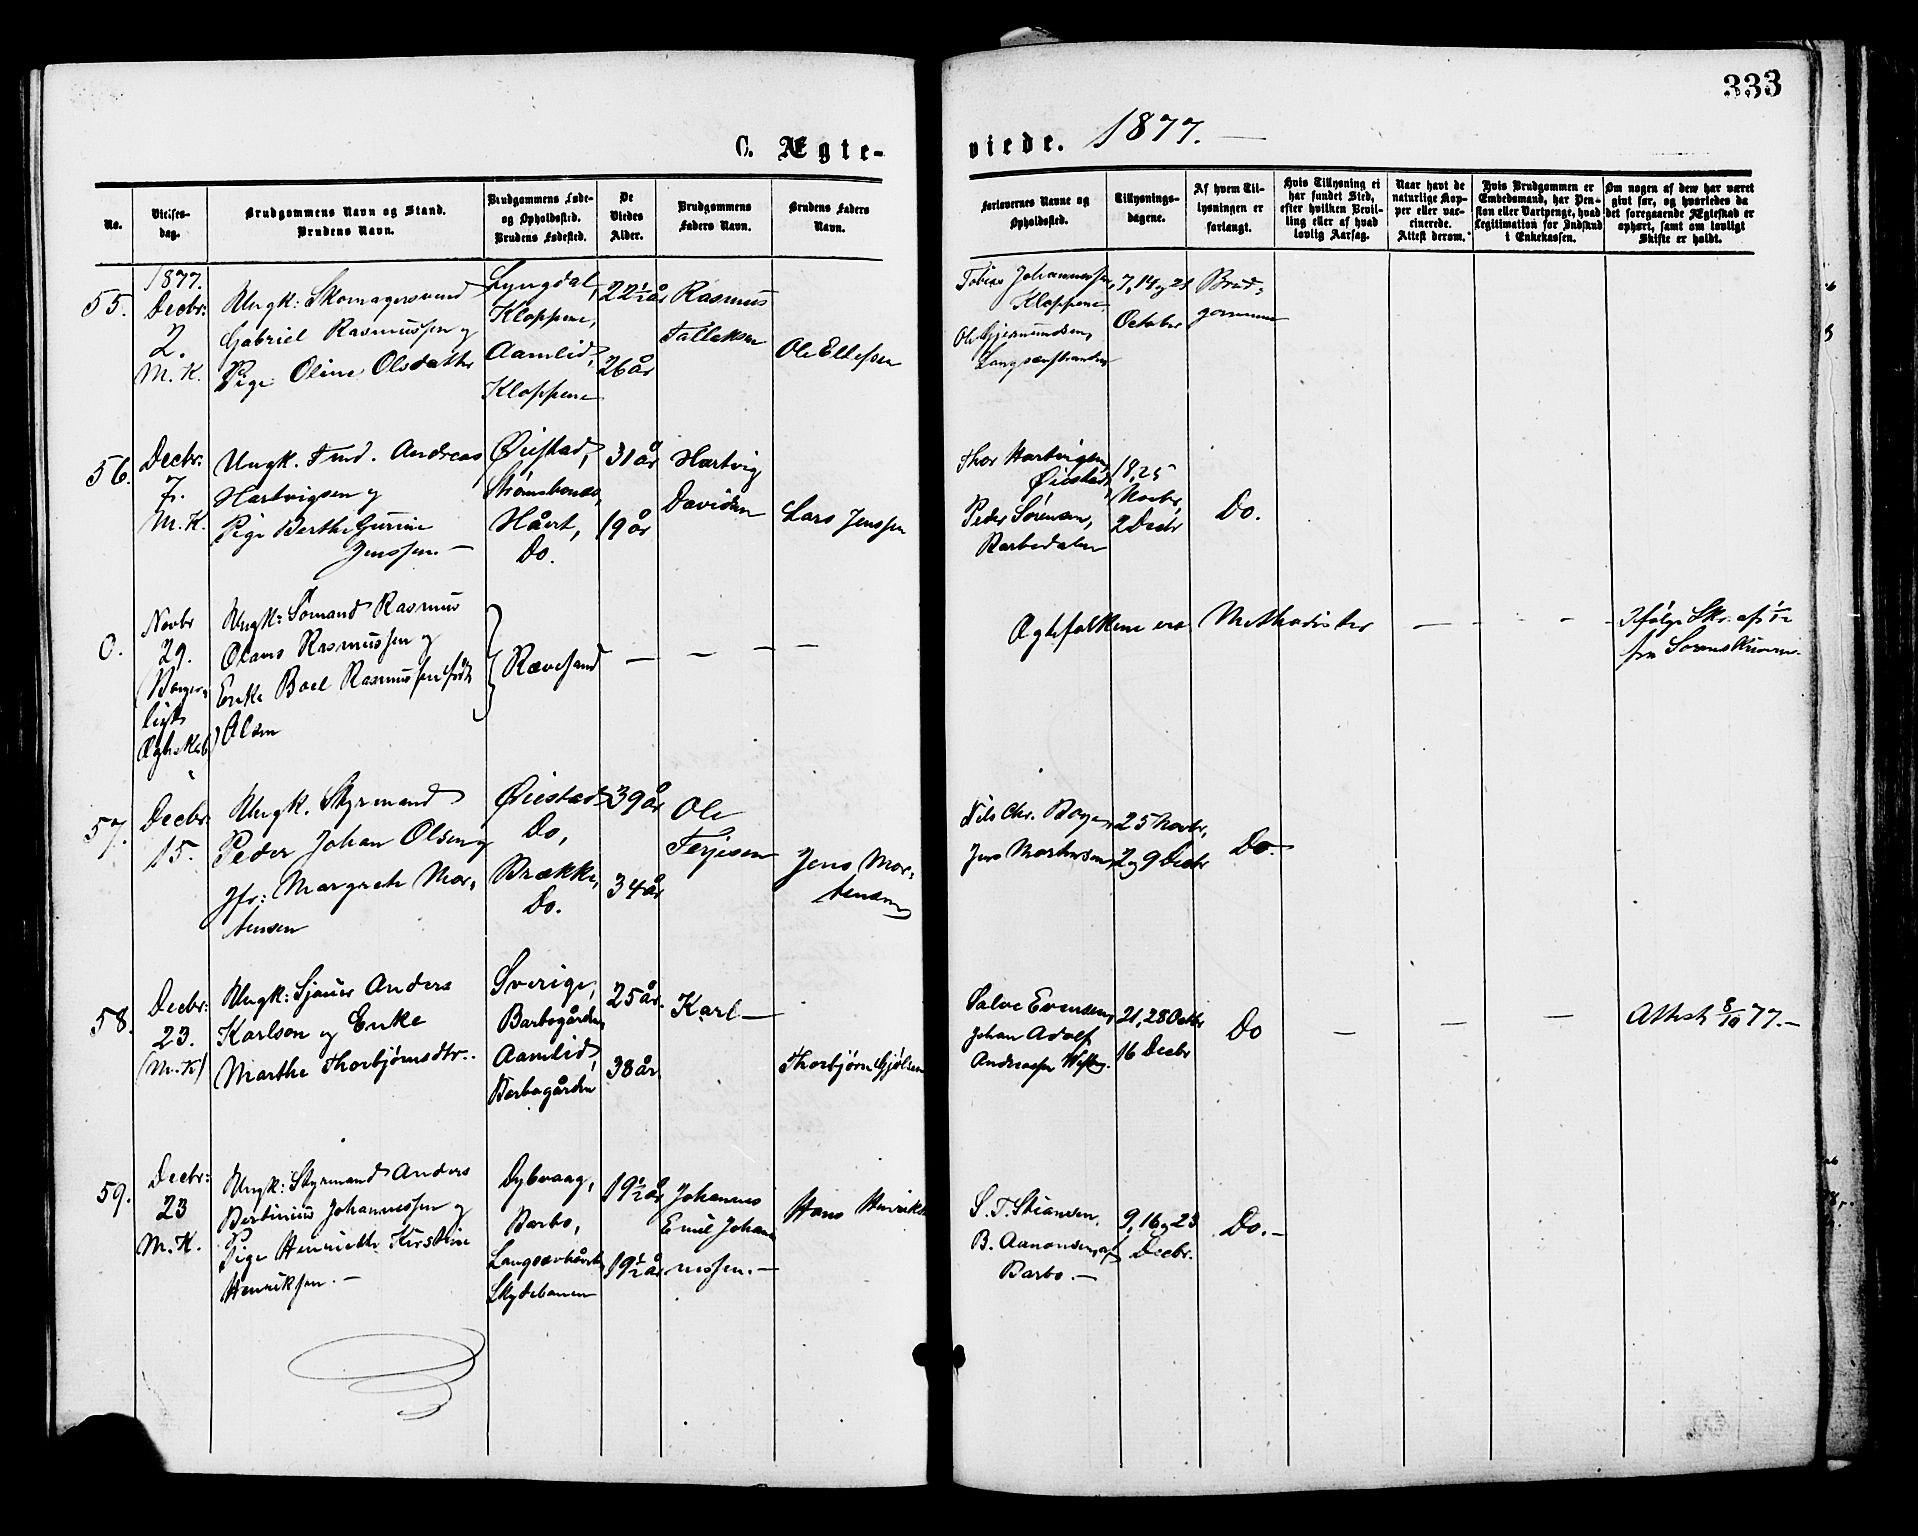 333
C. Ægte-
viede. 1877.
No.
Vielses-
dag.
Brudgommens Navn og Stand.
Brudens Navn.
Brudgommens Føde-
og Opholdssted.
Brudens Fødested.
De
Viedes
Alder.
Brudgommens
Faders Navn.
Brudens Faders
Navn.
Forlovernes Navne og
Opholdssted.
Tillysnings-
dagene.
Af hvem Til-
lysningen er
forlangt.
Hvis Tillysning ei
har fundet Sted,
efter hvilken Bevil-
ling eller af hvad
lovlig Aarsag.
Naar havt de
naturlige Kop-
per eller vac-
cinerede.
Attest derom.
Hvis Brudgommen er
Embedsmand, har Pen-
sion eller Vartpenge, hvad
Legitimation for Indskud
i Enkekassen.
Om nogen af dem har været
gift før, og hvorledes da
det foregaaende Ægteskab er
ophørt, samt om lovligt
Skifte er holdt.
55.
1877.
Decbr:
2.
M. K.
Ungk: Skomagersvend
Gabriel Rasmussen og
Pige Oline Olsdatter
Lyngdal,
Kloppene,
Aamlid,
Kloppene
22½ år
26 år
Rasmus
Tallaksen
Ole Ellefsen
Tobias Johannessen,
Kloppene
Ole Gjermundsen,
7, 14 og 21
October
Brud-
gommen
56.
Decbr:
7.
M. K.
Ungk. Tmd. Andreas
Hartvigsen og
Pige Berthe Gurine
Jenssen. —
Øiestad,
Strømsbonæs,
Håert,
Do.
31 år
19 år
Hartvig
Davidsen
Lars Jenssen
Thor Hartvigsen,
Øiestad,
Peder Sørensen,
Barbodalen
18, 25
Novbr,
2 Decbr
Do.
0.
Novbr
29.
(Borger-
ligt
Ægteskab)
Ungk: Sømand Rasmus
Olaus Rasmussen og
Enke Boel Rasmussen født
Olsen
Rævesand
— — — —
Ægtefolkene ere Methodister — — — —
Ifølge Skr. af
fra Sorenskriveren.
57.
Decbr:
15.
Ungk. Styrmand
Peder Johan Olsen og
Jfr: Margrethe Mor-
tensen
Øiestad
Do,
Brække,
Do.
39 år
34 år
Ole
Terjesen
Jens Mor-
tensen
Nils Chr. Boye,
Jens Mortensen
25 Novbr,
2 og 9 Decbr
Do.
58.
Decbr:
23.
(M. K)
Ungk: Sjauer Anders
Karlson og Enke
Marthe Thorbjørnsdtr.
Sverige,
Barbogården
Aamlid,
Barbogården
25 år.
38 år.
Karl —
Thorbjørn Gjølsen
Salve Evensen,
Johan Adolf
Andreasen
21, 28 Octbr
16 Decbr
Do — — —
Attest 8/10 77. —
59.
Decbr:
23
M. K.
Ungk: Styrmand Anders
Bertinius Johannessen og
Pige Henriette Kirstine
Henriksen. —
Dybvaag,
Barbo,
Skydebanen
19½ år
19½ år
Johannes
Emil Johan-
nessen. —
Hans Henriks
S. T. Stiansen,
B. Aanonsen, af
Barbo. —
9, 16 og 23
Decbr.
Do. —